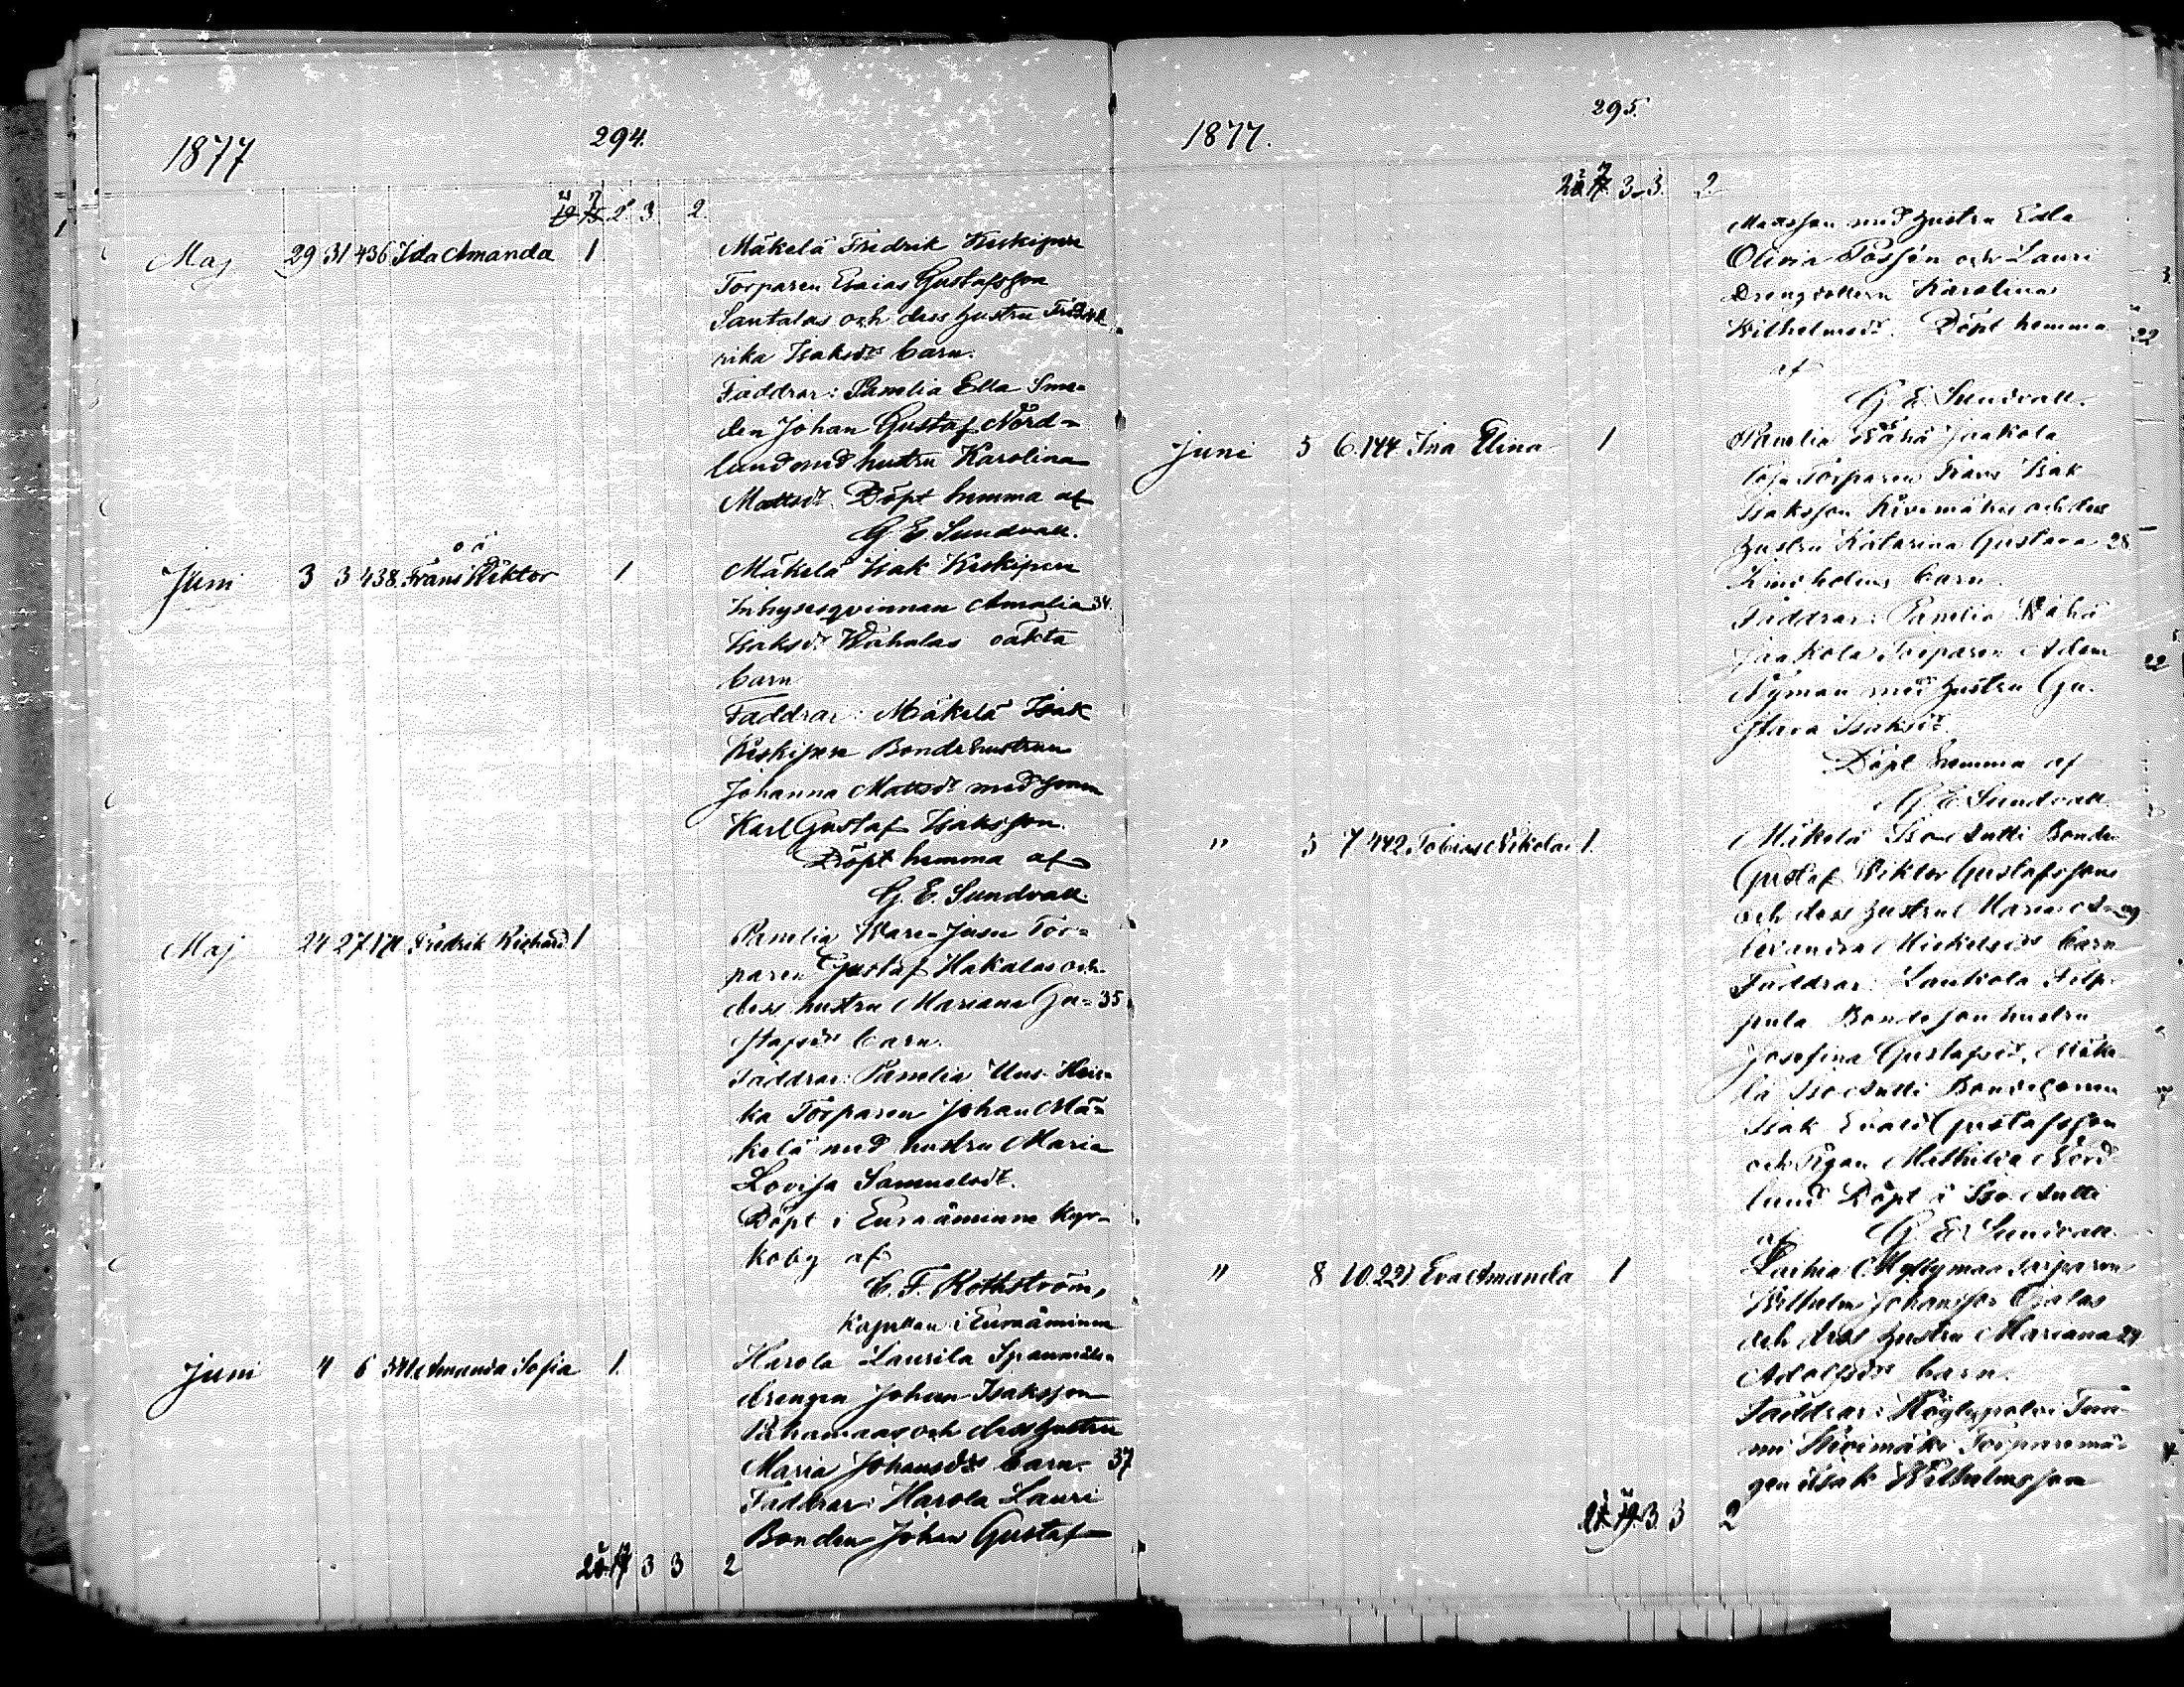 1877
294.
2. 3. 2.
Maj 29 31 436 Ida Amanda 1
Mäkelä Fredrik Keskipere
Torparen Esaias Gustafsson
Santalas och dess hustru Fred
rika Isaksdr barn.
Faddrar: Panelia Ella Sme-
den Johan Gustaf Nord-
lund med hustru Karolina
Mattsdr. Döpt hemma af
G. E. Sundvall.
o ä
Juni 3 3 438. Frans Wiktor 1
Mäkelä Isak Keskipere
Inhysesqvinnan Amalia 34.
Isaksdr Wahalas oäkta
barn
Faddrar: Mäkelä Isak
Keskipere Bondehustrun
Johanna Mattsdr med sonen
Karl Gustaf Isaksson.
Döpt hemma af
G. E. Sundvall.
Maj 24 27 171. Fredrik Richard. 1
Panelia Ware-Jusu Tor-
paren Gustaf Hakalas och
dess hustru Mariana Gu- 35
stafsdr barn.
Faddrar: Panelia Uus-Heik-
ka Torparen Johan Mä-
kelä med hustru Maria
Lovisa Samuelsdr.
Döpt i Euraåminne kyr-
koby af
C. F. Rothström,
Kapellan i Euraåminne
Juni 4 6 341. Amanda Sofia 1.
Harola Laurila Spannmåls-
drengen Johan Isaksson
och dess hustru
Maria Johansdrs barn. 37
Faddrar: Harola Lauri
Bonden Johan Gustaf
3 3 2
1877.
295.
3. 3. 2.
Mattsson med hustru Edla
Olivia och Lauri
Drengdottern Karolina
Wilhelmsdr. Döpt hemma
af
G. E. Sundvall.
Juni 5 6. 144 Ina Elina 1
Panelia Wähä Jaakola
Torparen Frans Isak
Isaksson Kivimäkis och dess
hustru Katarina Gustava 28.
Lindholms barn.
Faddrar: Panelia Wähä
Jaakola Torparen Adam
Nyman med hustru Gu-
stava Isaksdr.
Döpt hemma af
G. E. Sundvall
" 5 7 442. Tobias Nikolai 1.
Mäkelä Iso-Antti Bonden
Gustaf Wiktor Gustafssons
och dess hustru Maria A-
lexandra Mickelsdrs barn
Faddrar: Lankola Filp-
pula Bondesonhustru
Josefina Gustafsdr, Mäke-
lä Iso-Antti Bondesonen
Isak Evald Gustafsson
och Pigan Mathilda Nord-
lund Döpt i Iso-Antti
af G. E. Sundvall.
" 8 10. 221 Eva Amanda 1
Myllymaa Torparen
Wilhelm Johansson Ojalas
och dess hustru Mariana 24
Adolfsdrs barn.
Faddrar: Köylypolvi Tuo-
mi Kivimäki Torparemå-
gen Isak Wilhelmsson
3 3 2